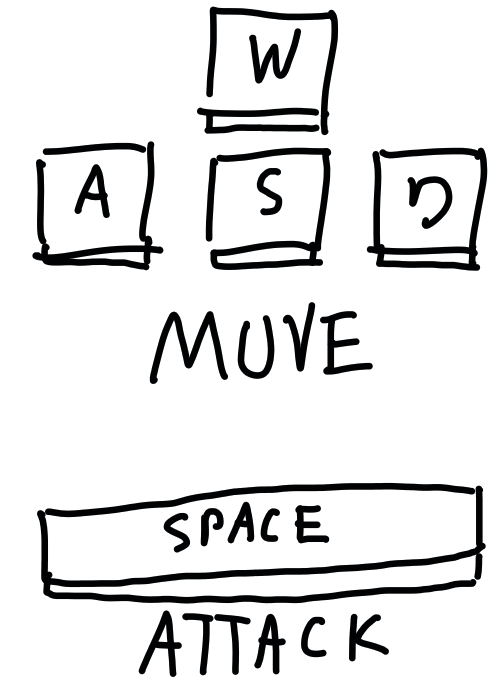 W
A S D
MOVE
SPACE
ATTACK